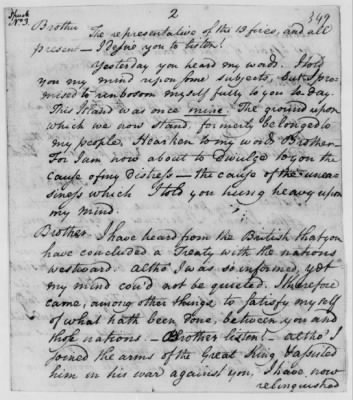 2
349
Speech
No. 3.
Brother
The representative of the 13 fires, and all
present — I desire you to listen!
Yesterday you heard my words. I told
you my mind upon some subjects, but I pro-
mised to unbosom myself fully to you to-day.
This Island was once mine. The ground upon
which we now stand, formerly belonged to
my people. Hearken to my words Brother—
For I am now about to Divulge to you the
cause of my distress — the cause of the unea-
siness which I told you hung heavy upon
my mind.
Brother, I have heard from the British that you
have concluded a Treaty with the nations
westward. Altho' I was so informed, yet
my mind cou'd not be quieted. I therefore
came, among other things to satisfy myself
of what hath been done, between you and
those nations. — Brother listen! — altho' I
joined the arms of the Great King & assisted
him in his war against you, I have now
relinquished